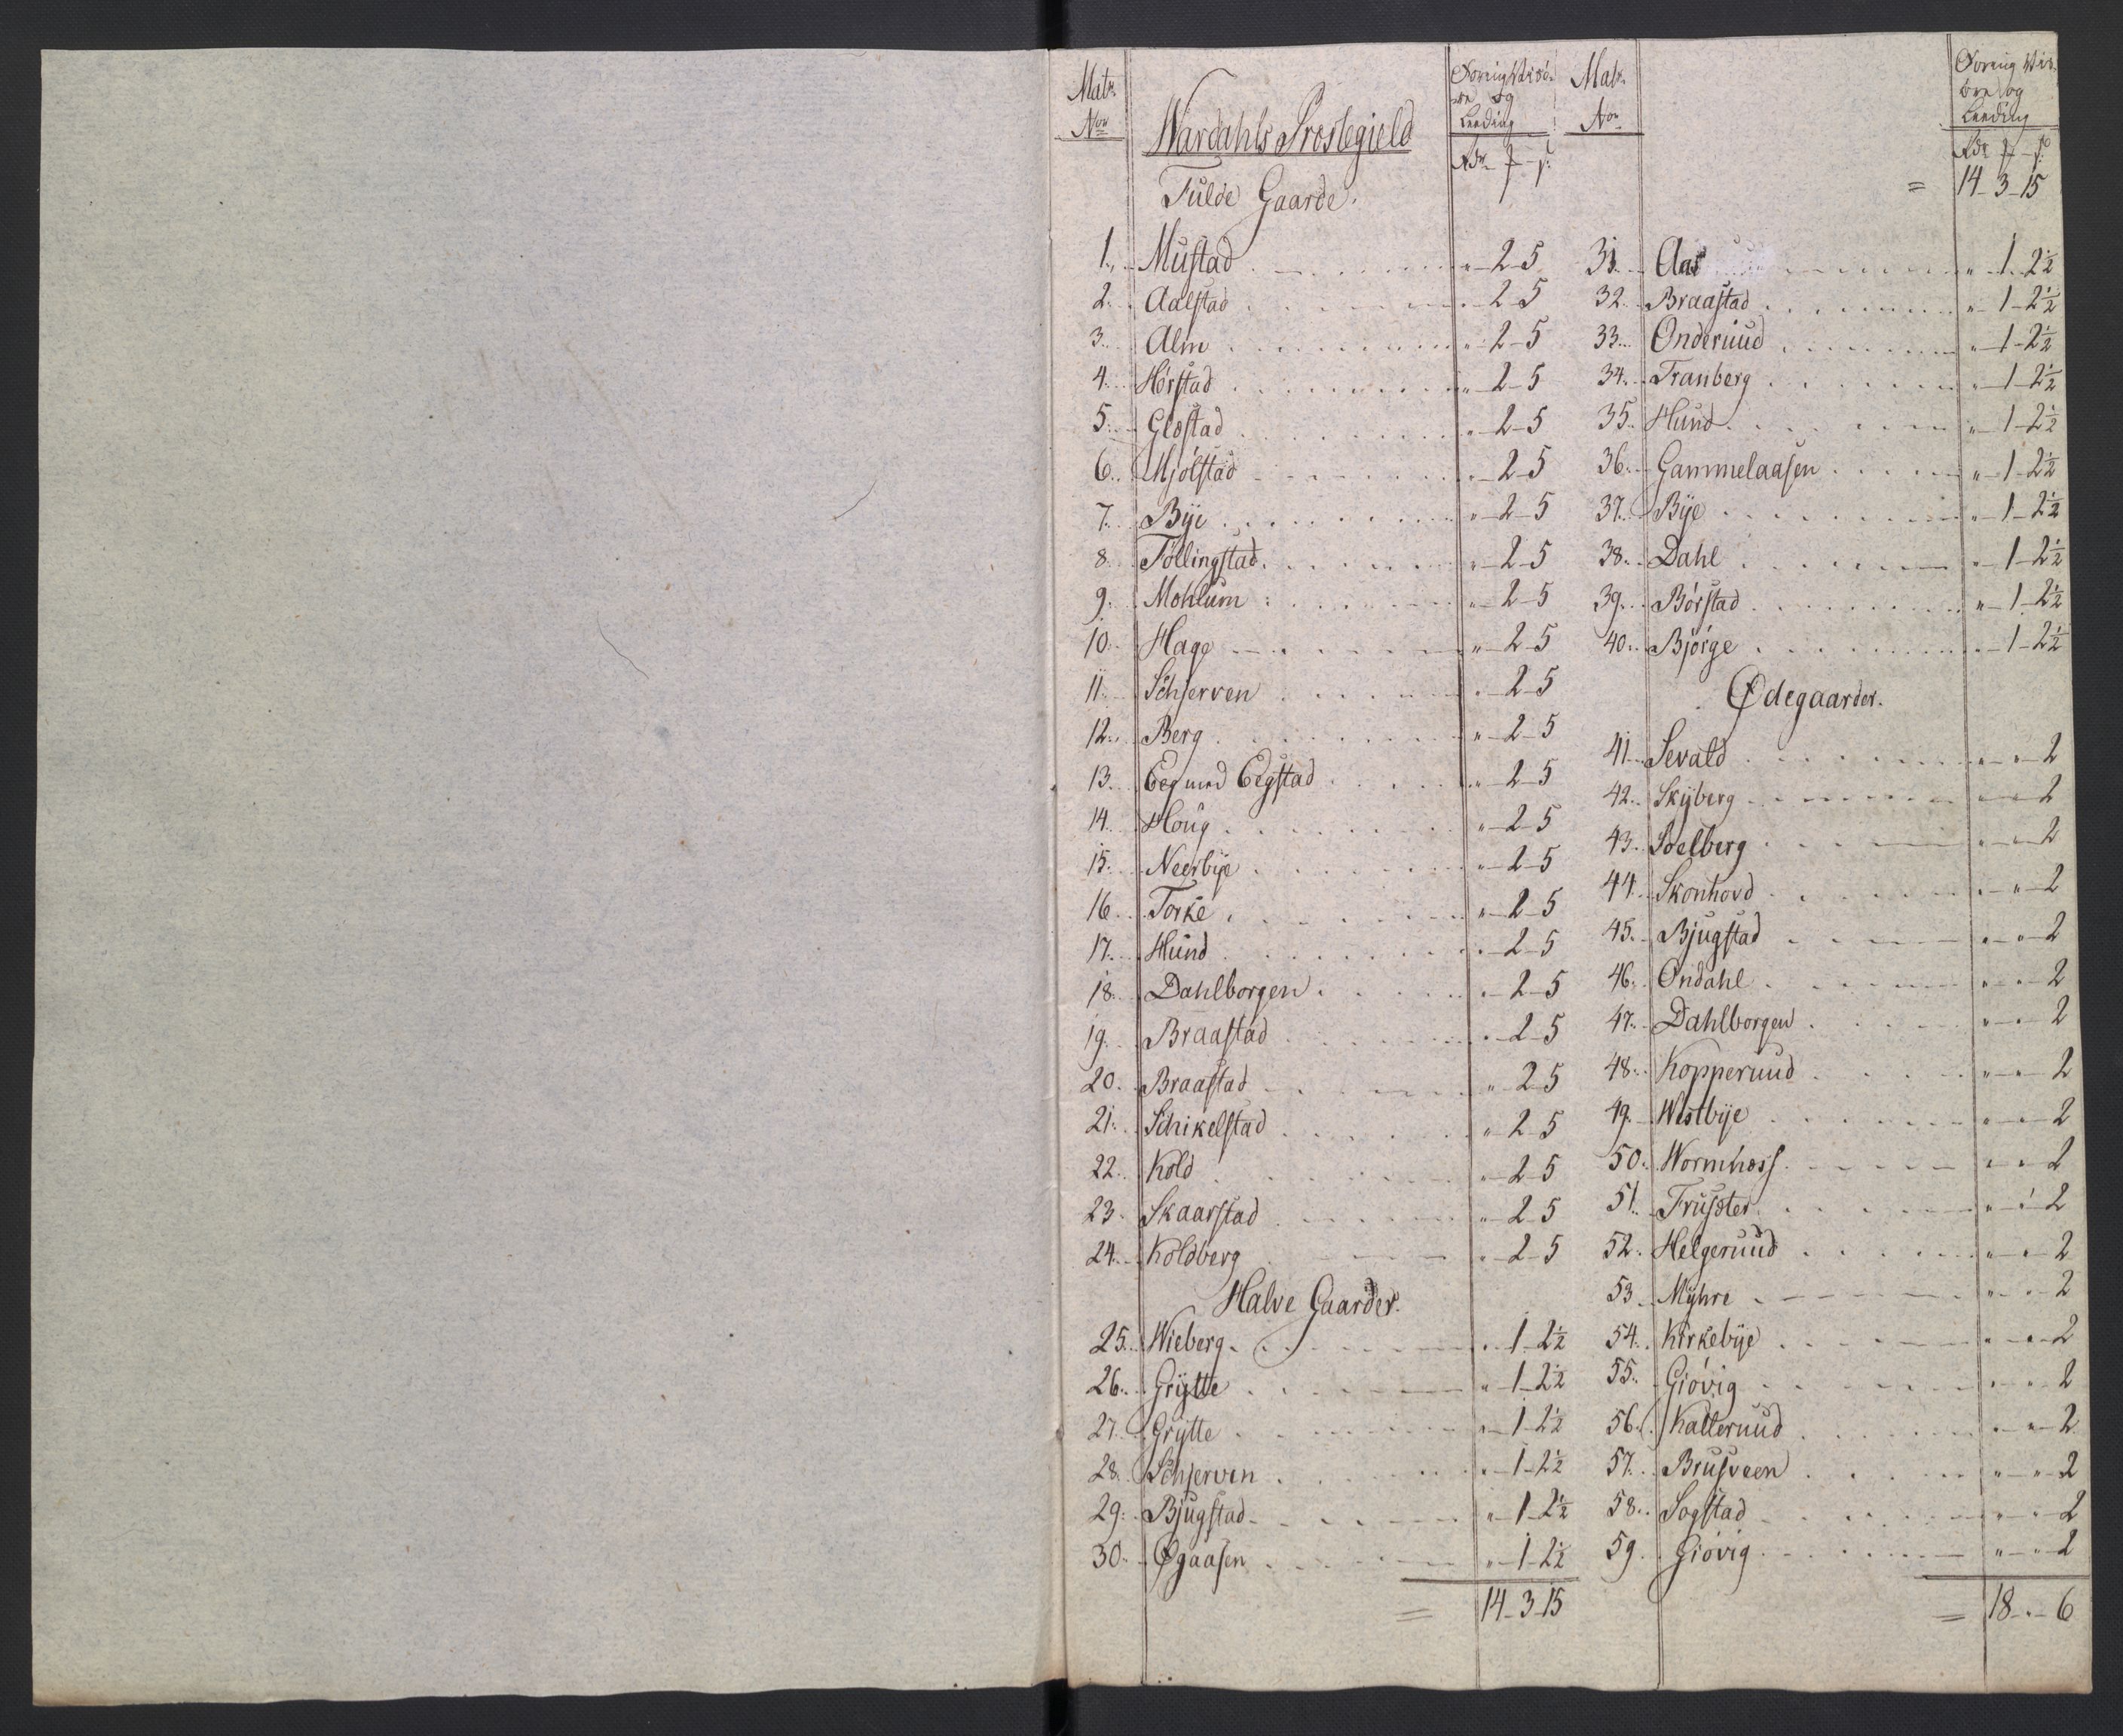 Matr. No.
Wardahls Præstegield
og Leeding
Rdr
Fulde Gaarde.
1. Mustad " 2 5
2. Aalstad " 2 5
3. Alm " 2 5
4. Hørstad " 2 5
5. Gløstad " 2 5
6. Mjølstad " 2 5
7. Bÿe " 2 5
8. Föllingstad " 2 5
9. Mohlum " 2 5
10. Hage " 2 5
11. Schjerven " 2 5
12. Berg " 2 5
13. Eeg med Eegstad " 2 5
14. Houg " 2 5
15. Neerbÿe " 2 5
16. Torke " 2 5
17. Hund " 2 5
18. Dahlborgen " 2 5
19. Braastad " 2 5
20. Braastad " 2 5
21. Schikelstad " 2 5
22. Kold " 2 5
23. Skaarstad " 2 5
24. Koldberg " 2 5
Halve Gaarder.
25. Wieberg " 1 2½
26. Grÿtte " 1 2½
27. Grÿtte " 1 2½
28. Schjerven " 1 2½
29. Bjugstad " 1 2½
30. Øgaasen " 1 2½
= 14 3 15
Matr. No.
og Leeding
Rdr
= 14 3 15
31. Aas " 1 2½
32. Braastad " 1 2½
33. Onderuud " 1 2½
34. Tranberg " 1 2½
35. Hund " 1 2½
36. Gammelaasen " 1 2½
37. Bÿe " 1 2½
38. Dahl " 1 2½
39. Børstad " 1 2½
40. Bjørge " 1 2½
Ødegaarder.
41. Sevald " " 2
42. Skÿberg " " 2
43. Soelberg " " 2
44. Skonhovd " " 2
45. Bjugstad " " 2
46. Ondahl " " 2
47. Dahlborgen " " 2
48. Kopperuud " " 2
49. Westbÿe " " 2
50. Wormhæss " " 2
51. Fruseter " " 2
52. Helgeruud " " 2
53. Mÿhre " " 2
54. Kirkebÿe " " 2
55. Giøvig " " 2
56. Kalleruud " " 2
57. Brusveen " " 2
58. Sogstad " " 2
59. Giøvig " " 2
= 18 " 6